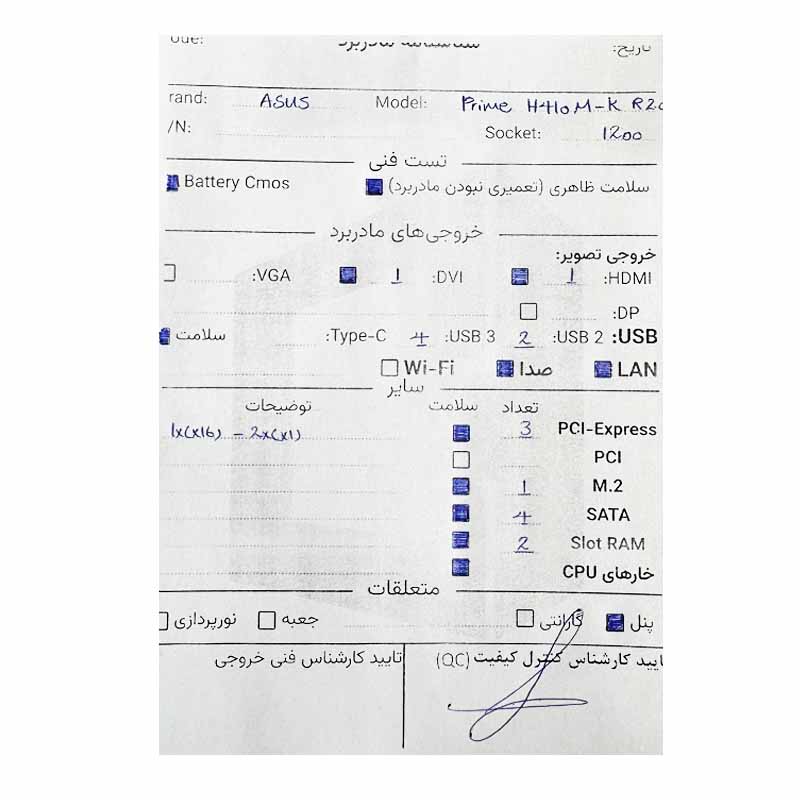 شناسنامه مادربرد
تاریخ:
rand: ASUS Model: Prime H410M-K R2
/N: Socket: 1200
تست فنی
سلامت ظاهری (تعمیری نبودن مادربرد) Battery Cmos
خروجی‌های مادربرد
خروجی تصویر:
HDMI: 1 DVI: 1 VGA:
DP:
USB: USB 2: 2 USB 3: 4 Type-C: سلامت
LAN صدا Wi-Fi
سایر
تعداد سلامت توضیحات
PCI-Express 3 1x(x16) – 2x(x1)
PCI
M.2 1
SATA 4
Slot RAM 2
خارهای CPU
متعلقات
پنل گارانتی جعبه نورپردازی
ایید کارشناس کنترل کیفیت (QC) تایید کارشناس فنی خروجی